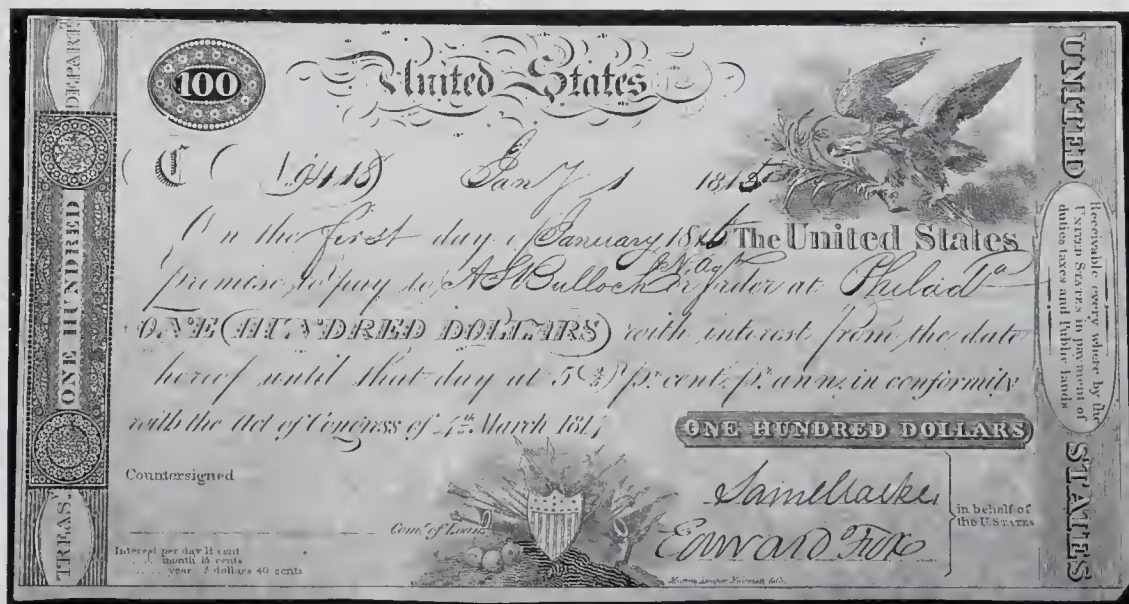 TREAS. DEPART.
ONE HUNDRED
100
United States
C
Jany 1 1815
On the first day of January 1816 The United States
promise to pay to A S Bulloch N. Agt or order at Philada
ONE HUNDRED DOLLARS with interest from the date
hereof until that day at 5 2/5 pr. cent. pr. ann. in conformity
with the Act of Congress of 4th March 1814
ONE HUNDRED DOLLARS
Countersigned
Comr. of Loans
Edward Fox
in behalf of
the U.STATES
Interest per day 1½ cent
month 45 cents
year 5 dollars 40 cents
Murray Draper Fairman &Co.
UNITED
Receivable every where by the
UNITED STATES in payment of
duties taxes and Public lands
STATES